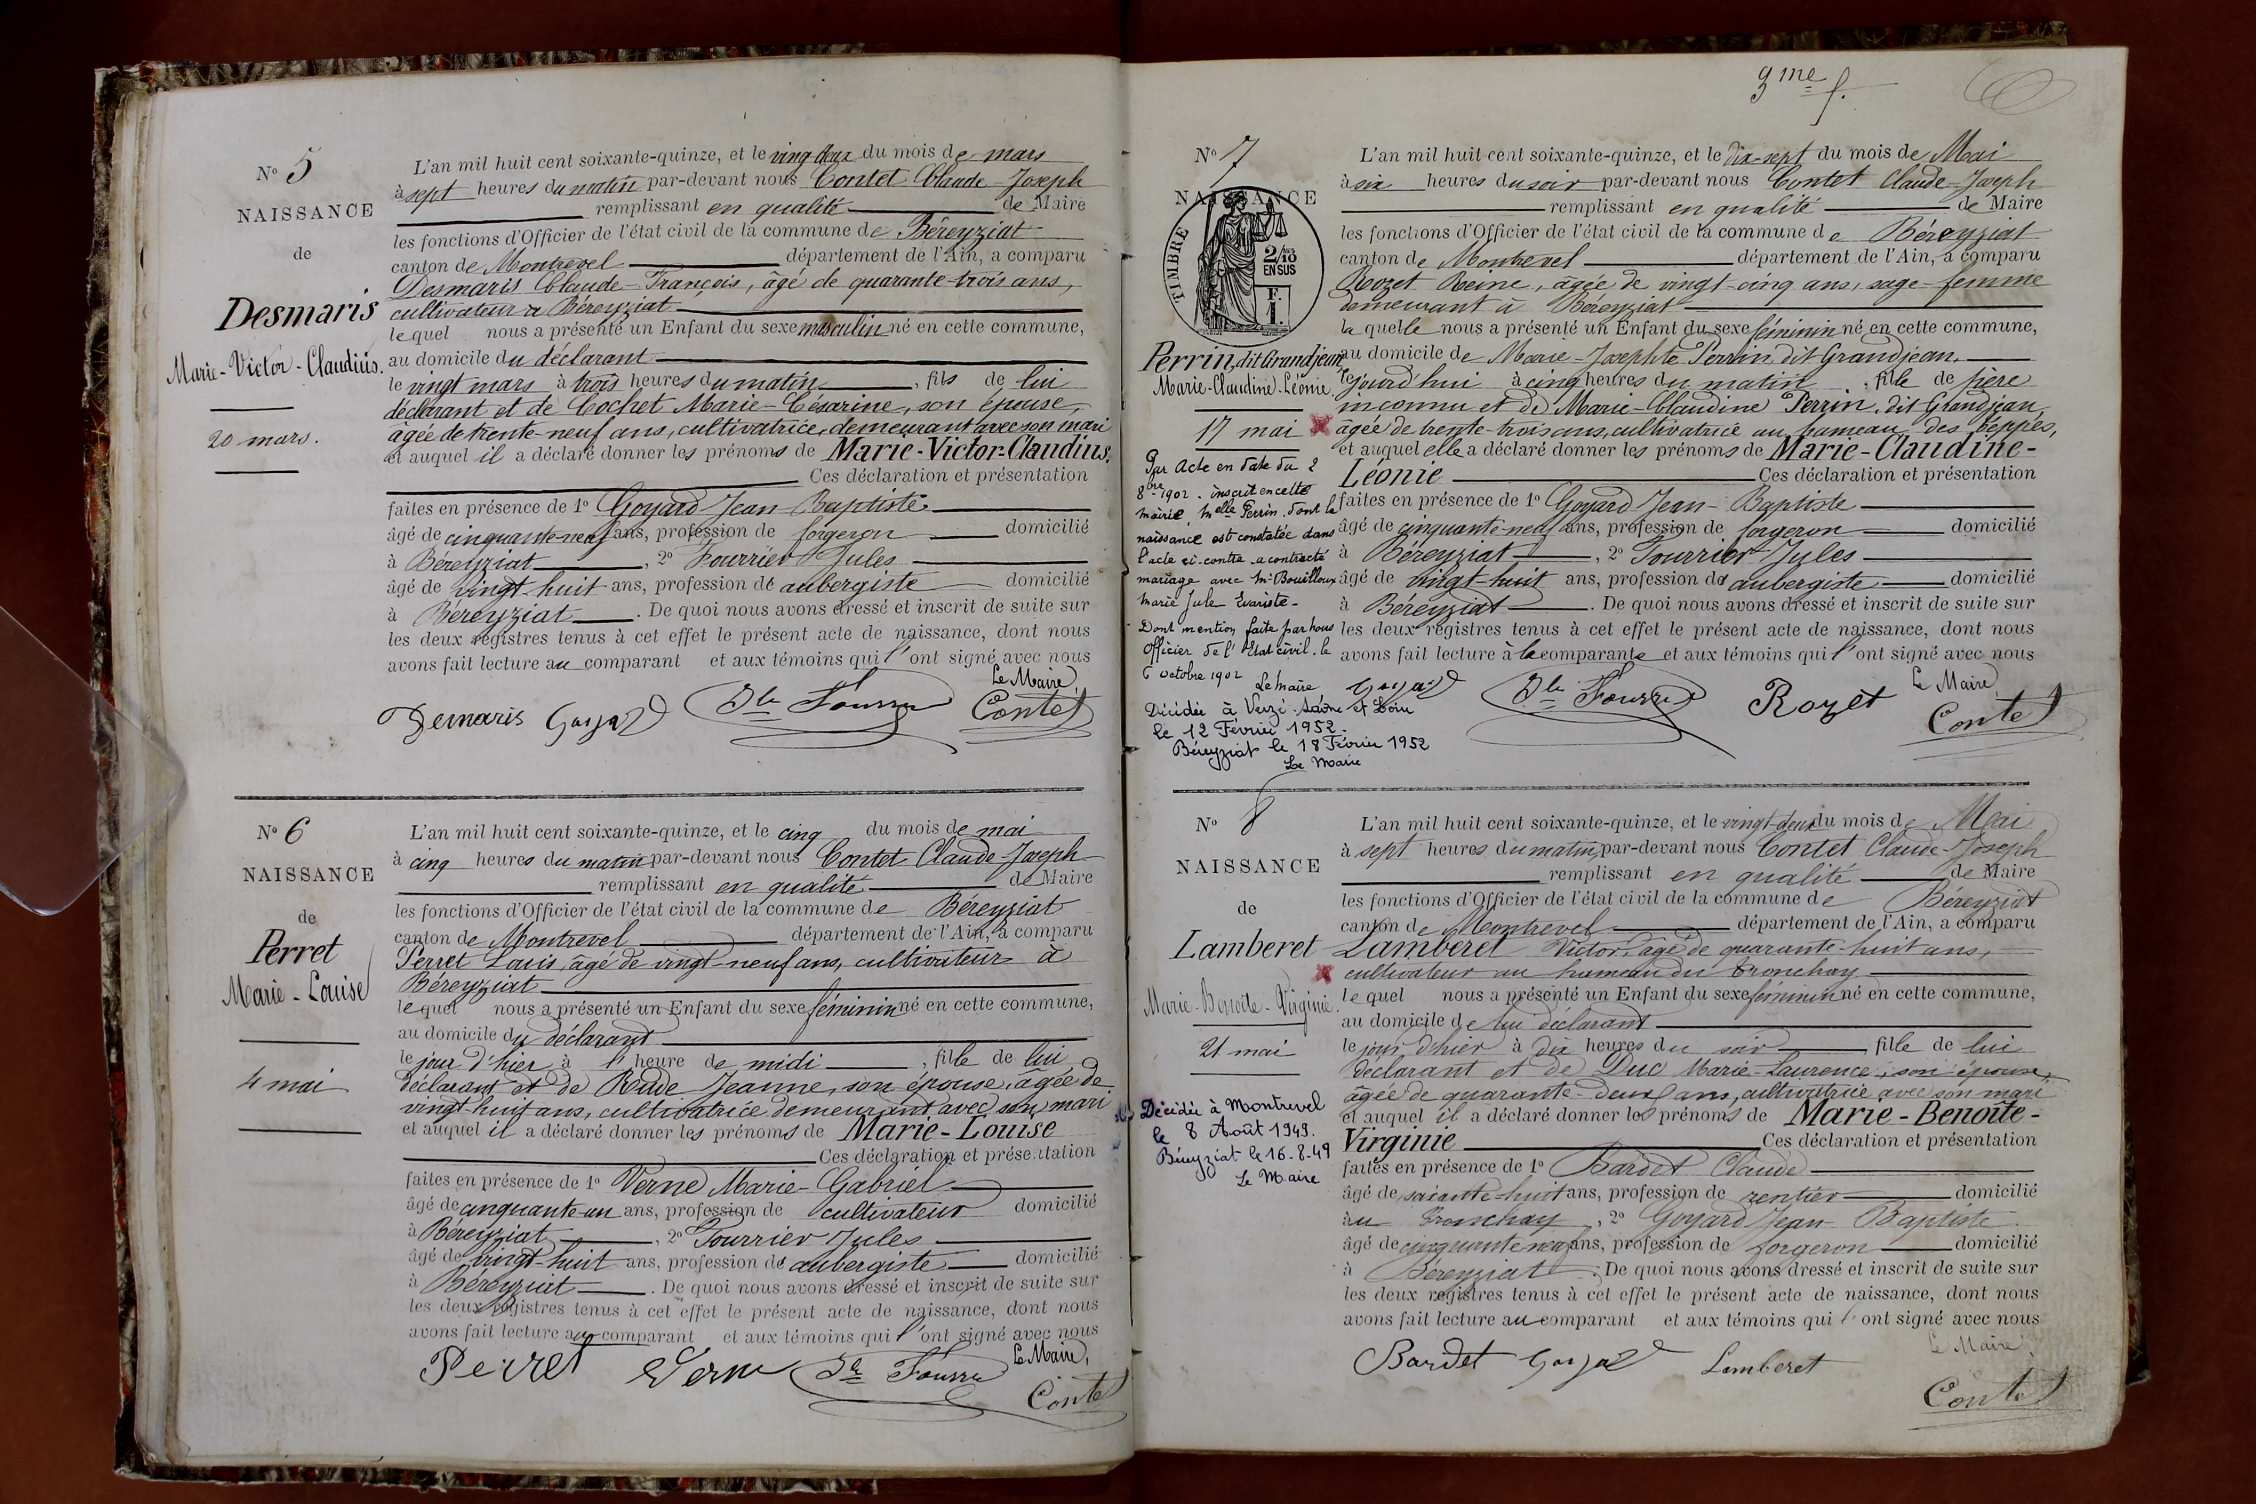 N° 5
NAISSANCE
de
Desmaris
Marie-Victor-Claudius.
20 mars.
L'an mil huit cent soixante-quinze, et le vingt deux du mois de mars
à sept heures du matin par-devant nous Contet Claude-Joseph
remplissant en qualité de Maire
les fonctions d'Officier de l'état civil de la commune de Béreyziat
canton de Montrevel département de l'Ain, a comparu
Desmaris Claude-François, âgé de quarante-trois ans,
cultivateur à Béreyziat
lequel nous a présenté un Enfant du sexe masculin né en cette commune,
au domicile du déclarant
le vingt mars à trois heures du matin, fils de lui
déclarant et de Cochet Marie-Césarine, son épouse,
âgée de trente-neuf ans, cultivatrice, demeurant avec son mari
et auquel il a déclaré donner les prénoms de Marie-Victor-Claudius.
Ces déclaration et présentation
faites en présence de 1° Goyard Jean-Baptiste
âgé de cinquante-neuf ans, profession de forgeron domicilié
à Béreyziat, 2° Fourrier Jules
âgé de vingt-huit ans, profession de aubergiste domicilié
à Béreyziat. De quoi nous avons dressé et inscrit de suite sur
les deux registres tenus à cet effet le présent acte de naissance, dont nous
avons fait lecture au comparant et aux témoins qui l'ont signé avec nous
Le Maire,
Demaris Goyard Jles Fourrier Contet
N° 6
NAISSANCE
de
Perret
Marie-Louise
4 mai
L'an mil huit cent soixante-quinze, et le cinq du mois de mai
à cinq heures du matin par-devant nous Contet Claude-Joseph
remplissant en qualité de Maire
les fonctions d'Officier de l'état civil de la commune de Béreyziat
canton de Montrevel département de l'Ain, a comparu
Perret Louis, âgé de vingt-neuf ans, cultivateur à
Béreyziat
lequel nous a présenté un Enfant du sexe féminin né en cette commune,
au domicile du déclarant
le jour d'hier à l'heure de midi, fille de lui
déclarant et de Rude Jeanne, son épouse, âgée de
vingt-huit ans, cultivatrice demeurant avec son mari
et auquel il a déclaré donner les prénoms de Marie-Louise
Ces déclaration et présentation
faites en présence de 1° Verne Marie-Gabriel
âgé de cinquante-un ans, profession de cultivateur domicilié
à Béreyziat, 2° Fourrier Jules
âgé de vingt-huit ans, profession de aubergiste domicilié
à Béreyziat. De quoi nous avons dressé et inscrit de suite sur
les deux registres tenus à cet effet le présent acte de naissance, dont nous
avons fait lecture au comparant et aux témoins qui l'ont signé avec nous
Le Maire,
Perret Verne Jles Fourrier Contet
3me f.
N° 7
NAISSANCE
TIMBRE
2/10
EN SUS
Perrin, dit Grandjean,
Marie-Claudine-Léonie
17 mai
Par Acte en date du 2
8bre 1902. inscrit en cette
mairie, Melle Perrin. dont la
naissance est constatée dans
l'acte ci-contre a contracté
mariage avec Mr Bouilloux
Marie Jule Evariste.
Dont mention faite par nous
Officier de l'Etat civil. le
6 octobre 1902
Le Maire
Décédée à Verzé Saône et Loire
le 12 Février 1952.
Béreyziat le 18 Février 1952
Le Maire
L'an mil huit cent soixante-quinze, et le dix-sept du mois de Mai
à six heures du soir par-devant nous Contet Claude-Joseph
remplissant en qualité de Maire
les fonctions d'Officier de l'état civil de la commune de Béreyziat
canton de Montrevel département de l'Ain, a comparu
Rozet Reine, âgée de vingt-cinq ans, sage-femme
demeurant à Béreyziat
laquelle nous a présenté un Enfant du sexe féminin né en cette commune,
au domicile de Marie-Josephte Perrin dit Grandjean,
cejourd'hui à cinq heures du matin, fille de père
inconnu et de Marie-Claudine Perrin, dit Grandjean,
âgée de trente-trois ans, cultivatrice au hameau des Teppes,
et auquel elle a déclaré donner les prénoms de Marie-Claudine-
Léonie Ces déclaration et présentation
faites en présence de 1° Goyard Jean-Baptiste
âgé de cinquante-neuf ans, profession de forgeron domicilié
à Béreyziat, 2° Fourrier Jules
âgé de vingt-huit ans, profession de aubergiste domicilié
à Béreyziat. De quoi nous avons dressé et inscrit de suite sur
les deux registres tenus à cet effet le présent acte de naissance, dont nous
avons fait lecture à la comparante et aux témoins qui l'ont signé avec nous
Le Maire,
Goyard Jles Fourrier Rozet Contet
N° 8
NAISSANCE
de
Lamberet
Marie-Benoîte-Virginie.
21 mai
Décédée à Montrevel
le 8 Août 1949.
Béreyziat le 16-8-49
Le Maire
L'an mil huit cent soixante-quinze, et le vingt-deux du mois de Mai
à sept heures du matin, par-devant nous Contet Claude-Joseph
remplissant en qualité de Maire
les fonctions d'Officier de l'état civil de la commune de Béreyziat
canton de Montrevel département de l'Ain, a comparu
Lamberet Victor, âgé de quarante-huit ans,
cultivateur au hameau du tronchay
lequel nous a présenté un Enfant du sexe féminin né en cette commune,
au domicile de lui déclarant
le jour d'hier à dix heures du soir, fille de lui
déclarant et de Duc Marie-Laurence, son épouse,
âgée de quarante-deux ans, cultivatrice avec son mari
et auquel il a déclaré donner les prénoms de Marie-Benoîte-
Virginie Ces déclaration et présentation
faites en présence de 1° Bardet Claude
âgé de soixante-huit ans, profession de rentier domicilié
au Tronchay, 2° Goyard Jean-Baptiste
âgé de cinquante neuf ans, profession de forgeron domicilié
à Béreyziat. De quoi nous avons dressé et inscrit de suite sur
les deux registres tenus à cet effet le présent acte de naissance, dont nous
avons fait lecture au comparant et aux témoins qui l'ont signé avec nous
Le Maire,
Bardet Goyard Lamberet Contet